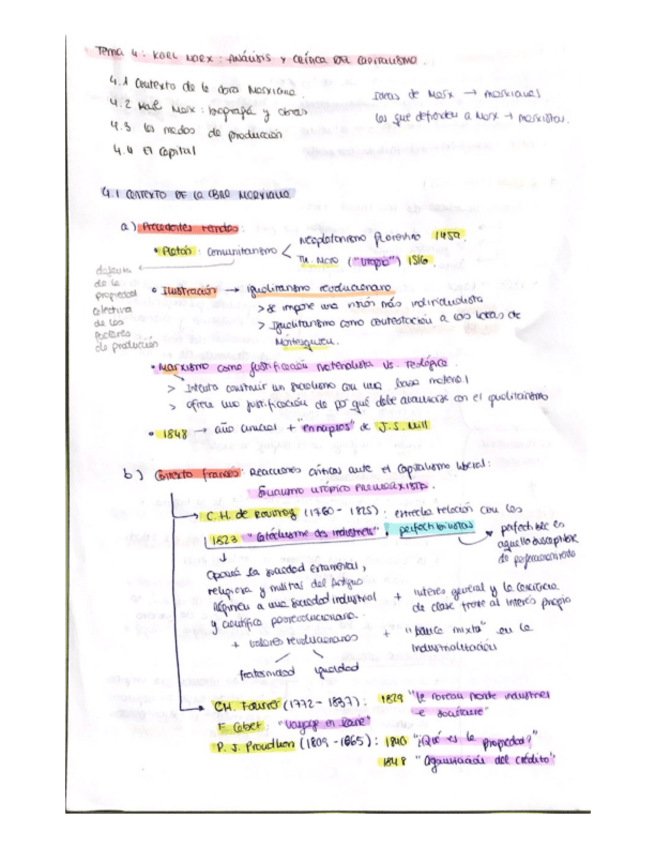 Tema 4: KARL MARX: ANÁLISIS Y CRÍTICA DEL CAPITALISMO.
4.1 Contexto de la obra Marxiana.
4.2 Karl Marx: biografía y obras
4.3 Los modos de producción
4.4 El Capital
Ideas de Marx → marxianas.
Los que defienden a Marx → marxistas.
4.1 CONTEXTO DE LA OBRA MARXIANA
a) Precedentes remotos:
• Platón: comunitarismo < Neoplatonismo florentino 1459.
Th. Moro ("Utopía") 1516
defensa de la propiedad colectiva de los factores de producción
• Ilustración → igualitarismo revolucionario
> se impone una visión más individualista
> Igualitarismo como contestación a las ideas de Montesquieu.
• Marxismo como justificación materialista vs. teológica.
> Intenta construir un socialismo con una base material
> ofrece una justificación de por qué debe alcanzarse con el igualitarismo
• 1848 → año crucial + "Principios" de J.S. Mill
b) Contexto francés: Reacciones críticas ante el capitalismo liberal:
Socialismo utópico premarxista.
C.H. de Rouvroy (1760 - 1825): estrecha relación con los
1823 "Catéchisme des industriels". perfectibilistas
→ perfectible es aquello susceptible de perfeccionamiento
Oponía la sociedad estamental,
religiosa y militar del Antiguo
Régimen a una sociedad industrial
y científica posrevolucionaria.
+ valores revolucionarios
fraternidad igualdad
+ interés general y la conciencia
de clase frente al interés propio
+ "banca mixta" en la
industrialización
CH. Fourier (1772 - 1837): 1829 "Le nouveau monde industriel
et sociétaire"
F. Cabet: "Voyage en Icarie"
P. J. Proudhon (1809 - 1865): 1840 "¿Qué es la propiedad?"
1848 "Organización del crédito"